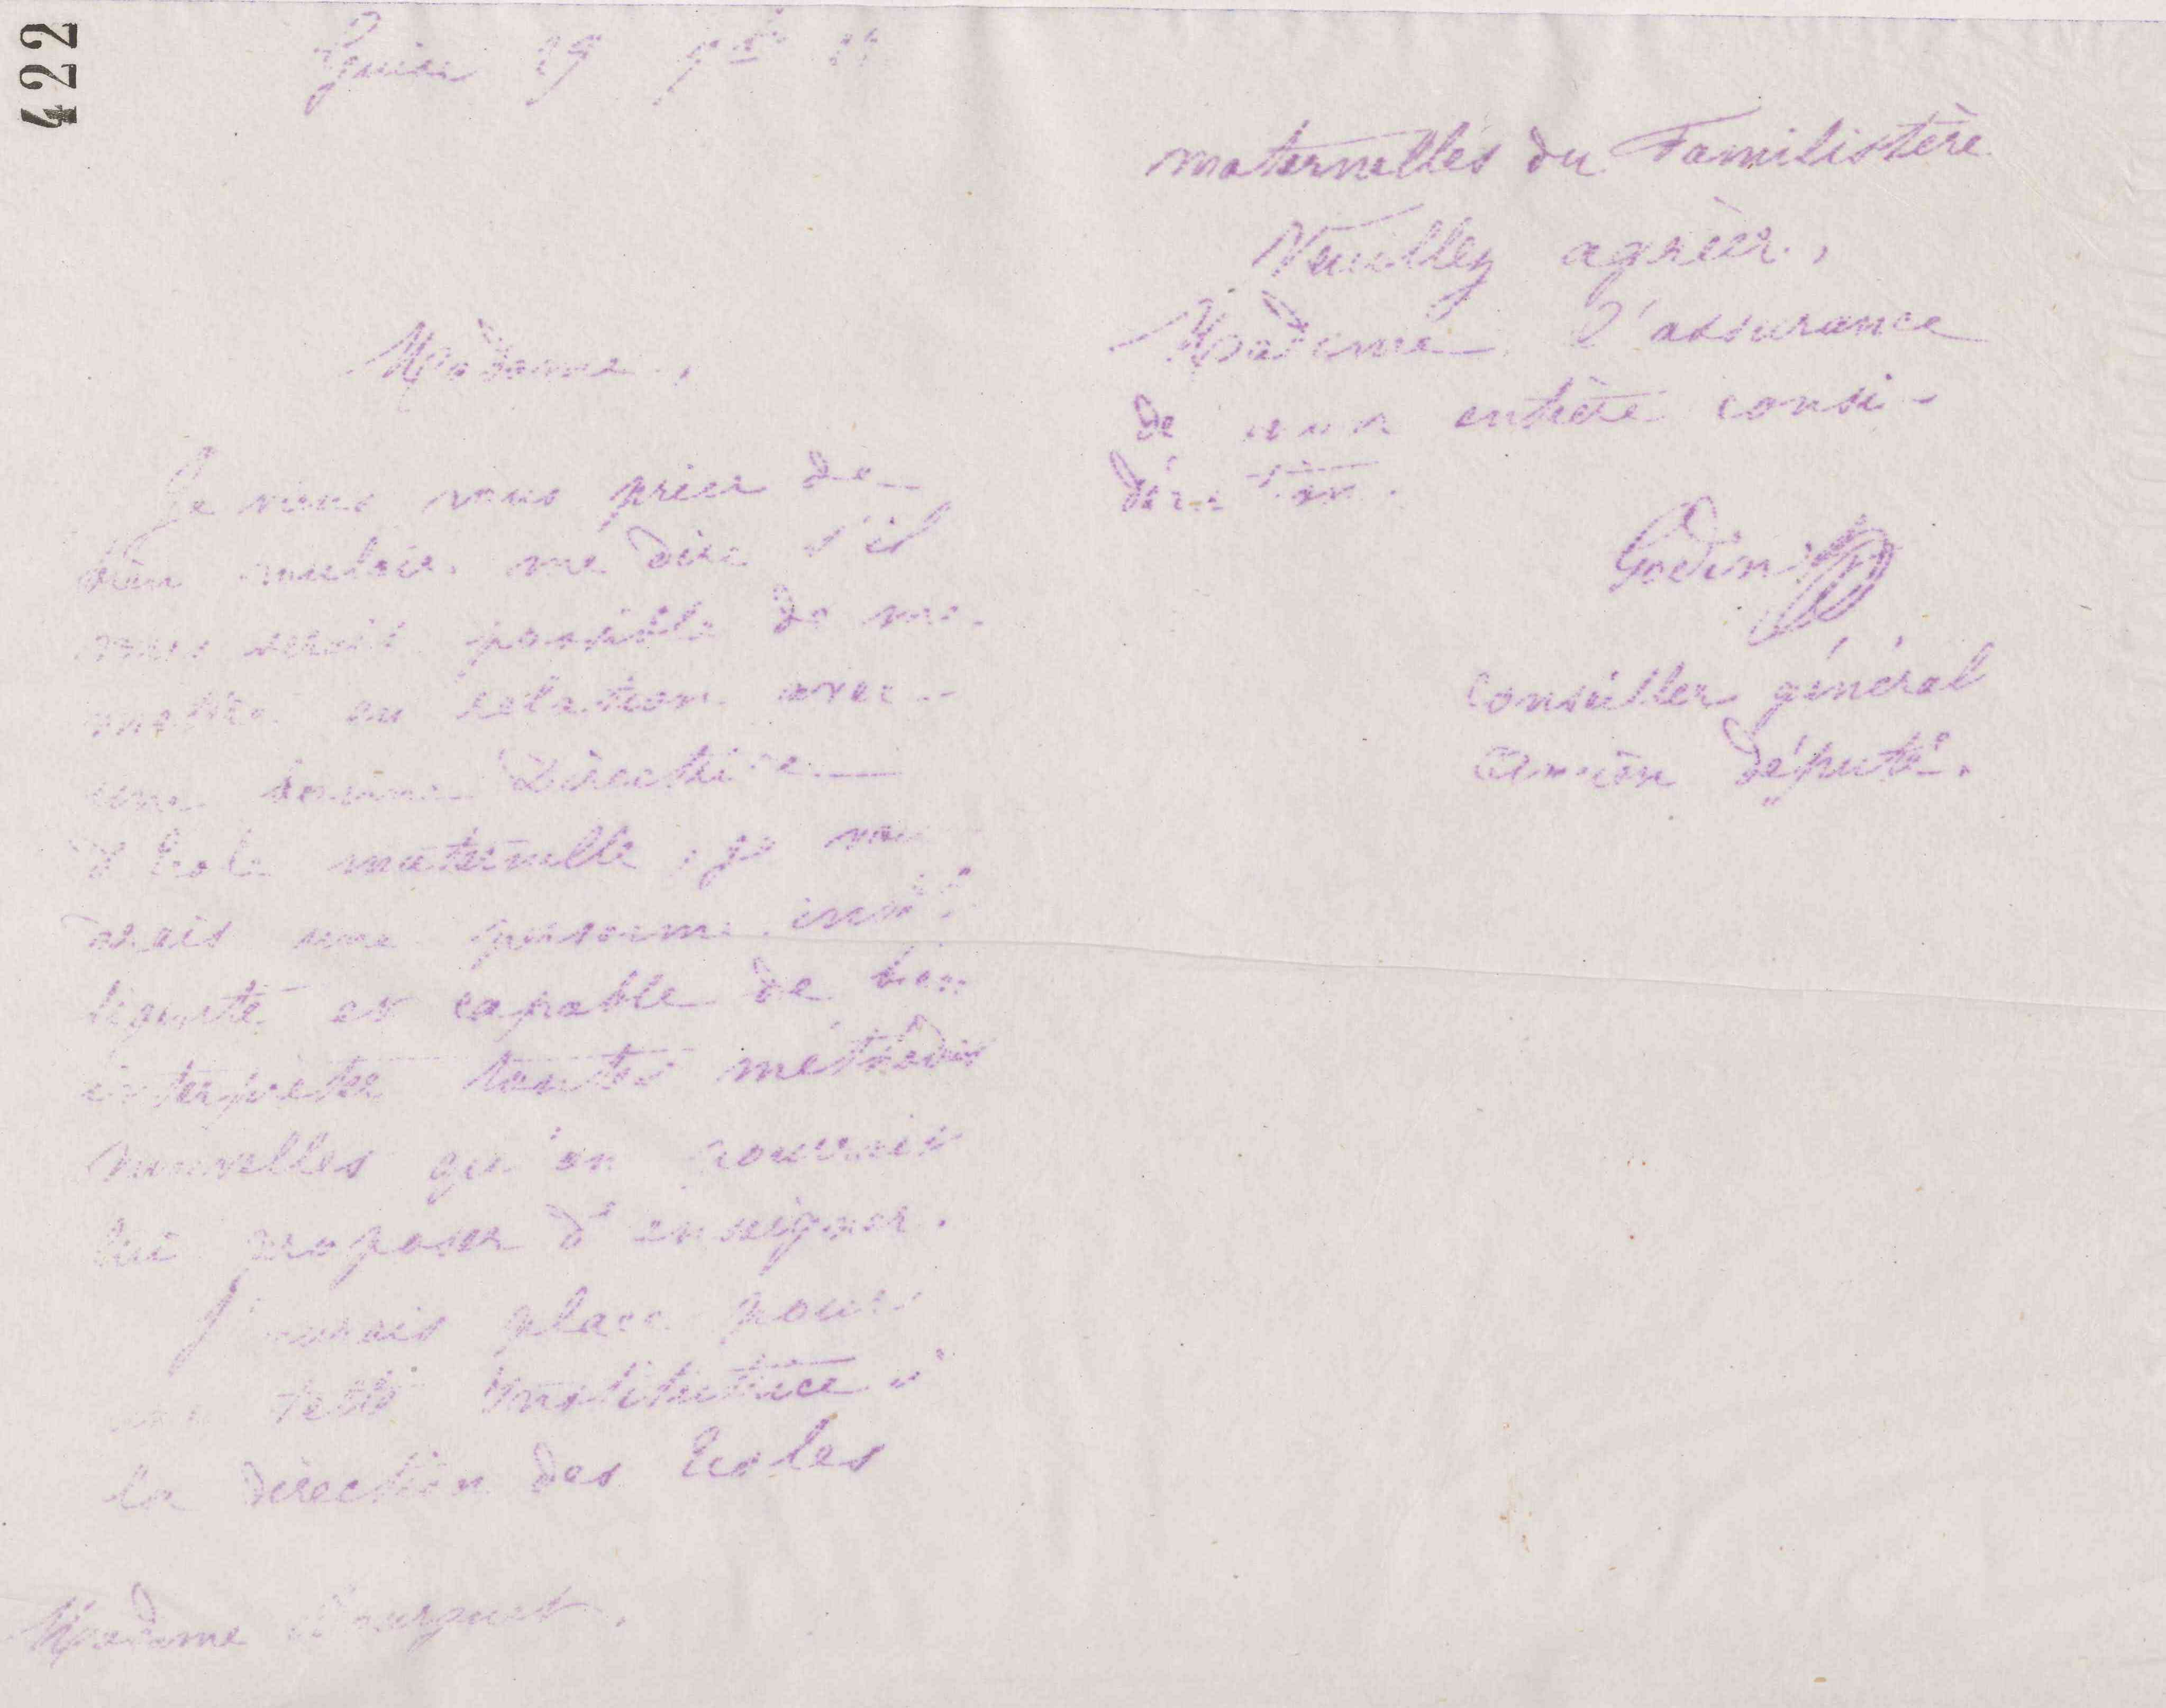 422
Guise 29 9bre
Madame,
Je viens vous prier de
bien vouloir me dire s'il
vous serait possible de me
mettre en relation avec
une bonne Directrice
d'École maternelle, je
une personne
et capable de bien
interpréter toutes méthodes
nouvelles qu'on pourrait
lui proposer d'enseigner.
J'aurais place pour
une telle Institutrice à
la direction des Écoles
Madame
maternelles du Familistère
Veuillez agréer,
Madame l'assurance
de mon entière consi-
dération.
Godin
Conseiller général
ancien député.